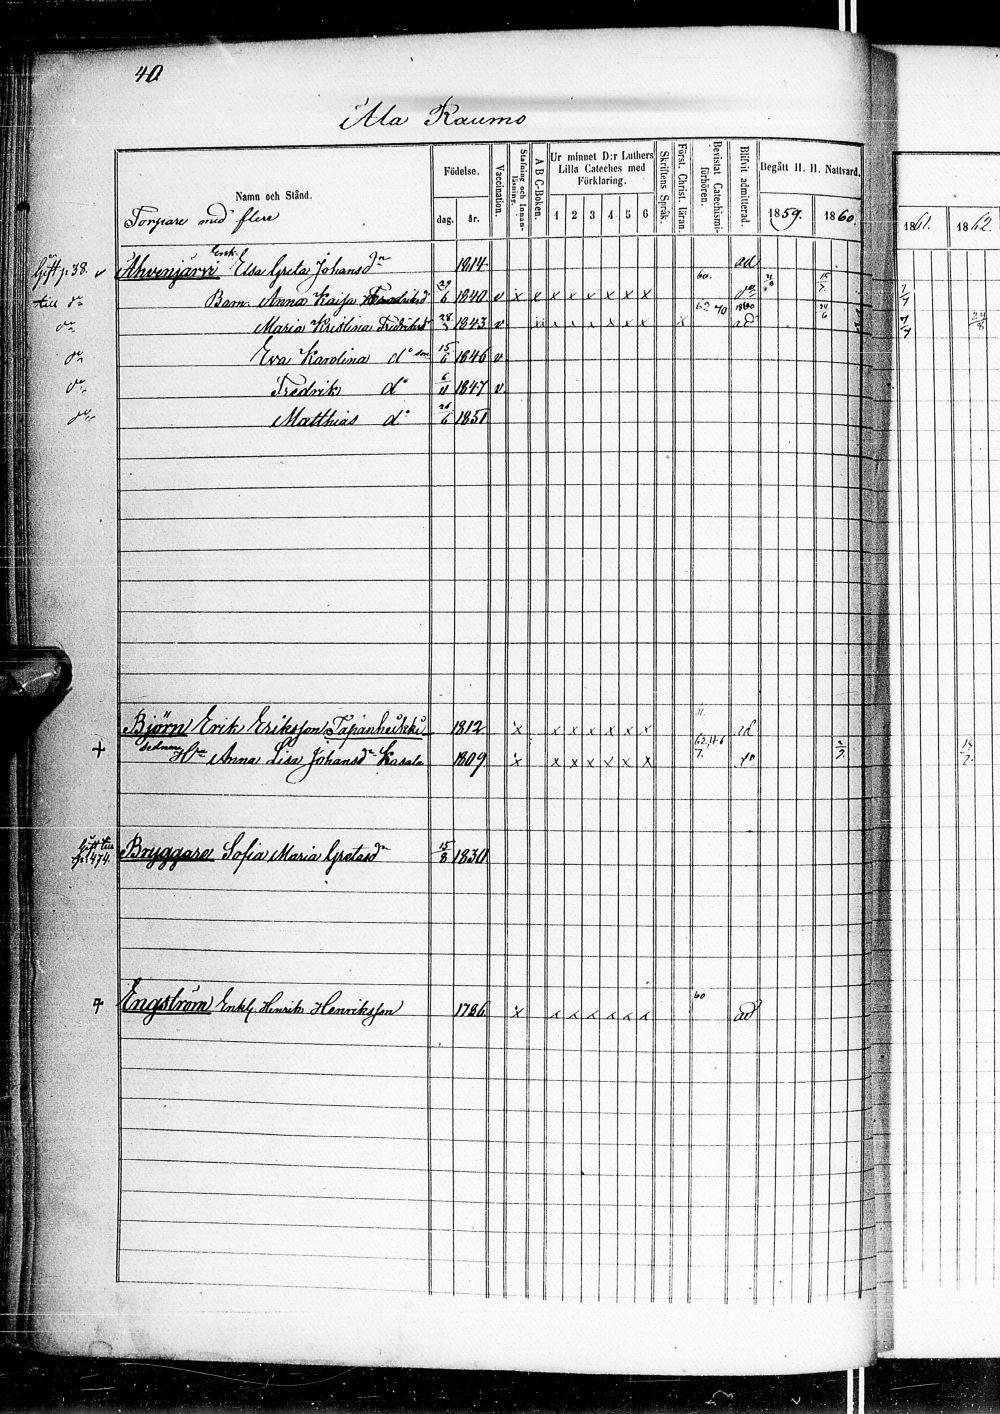 40
Ala Raumo
Namn och Stånd.
Torpare med flere
Födelse.
dag. år.
Vaccination.
Stafning och Innanläsning.
A B C-Boken.
Ur minnet D:r Luthers Lilla Cateches med Förklaring.
1 2 3 4 5 6
Skriftens Språk.
Först. Christ. läran.
Bevistat Catechismiförhören.
Blifvit admitterad.
Begått H. H. Nattvard.
1859. 1860.
1861. 1862.
Gift p. 38. v Ahvenjärvi Enk. Elsa Greta Johansdr 1814 ad
till do Barn Anna Kaisa Fredriksd 29/6 1840 v x x x x x x x x 60. do
do Maria Kristina Fredriksd 28/2 1843 v x x x x x x x 62 70 1860 ad 24/6 24/8
do Eva Karolina do 15/6 1846 v
do Fredrik do 6/11 1847 v
do Matthias do 26/6 1851
Björn Erik Eriksson Tapanheikki 1812 x x x x x x x ad
+ sednare Hu Anna Lisa Johansdr Kasala 1809 x x x x x x x do
Gift till p. 474. Bryggare Sofia Maria Gretasdr 15/8 1830
+ Engström Enkl. Henrik Henriksson 1786 x x x x x x x 60 ad